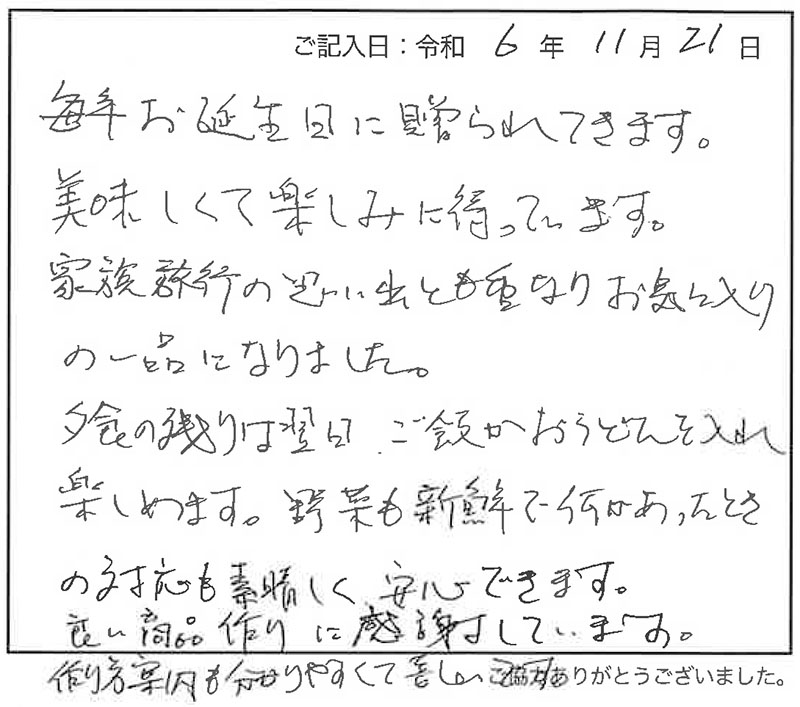 ご記入日：令和 6 年 11 月 21 日
毎年お誕生日に贈られてきます。
美味しくて楽しみに待っています。
家族旅行の思い出とも重なりお気に入り
の一品になりました。
夕食の残りは翌日、ご飯かおうどんを入れ
楽しめます。野菜も新鮮で何かあったとき
の対応も素晴しく安心できます。
良い商品作りに感謝しています。
作り方案内も分かりやすくて喜しい ご協力ありがとうございました。